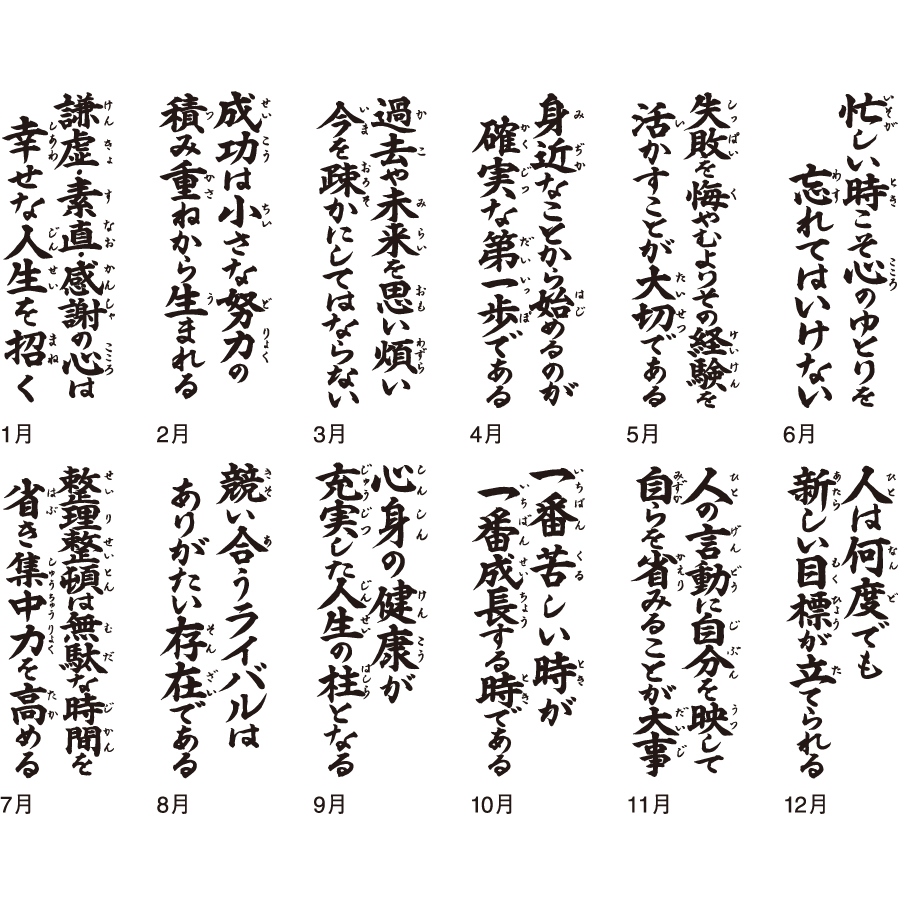 謙虚・素直・感謝の心は
幸せな人生を招く
1月
成功は小さな努力の
積み重ねから生まれる
2月
過去や未来を思い煩い
今を疎かにしてはならない
3月
身近なことから始めるのが
確実な第一歩である
4月
失敗を悔やむよりその経験を
活かすことが大切である
5月
忙しい時こそ心のゆとりを
忘れてはいけない
6月
整理整頓は無駄な時間を
省き集中力を高める
7月
競い合うライバルは
ありがたい存在である
8月
心身の健康が
充実した人生の柱となる
9月
一番苦しい時が
一番成長する時である
10月
人の言動に自分を映して
自らを省みることが大事
11月
人は何度でも
新しい目標が立てられる
12月